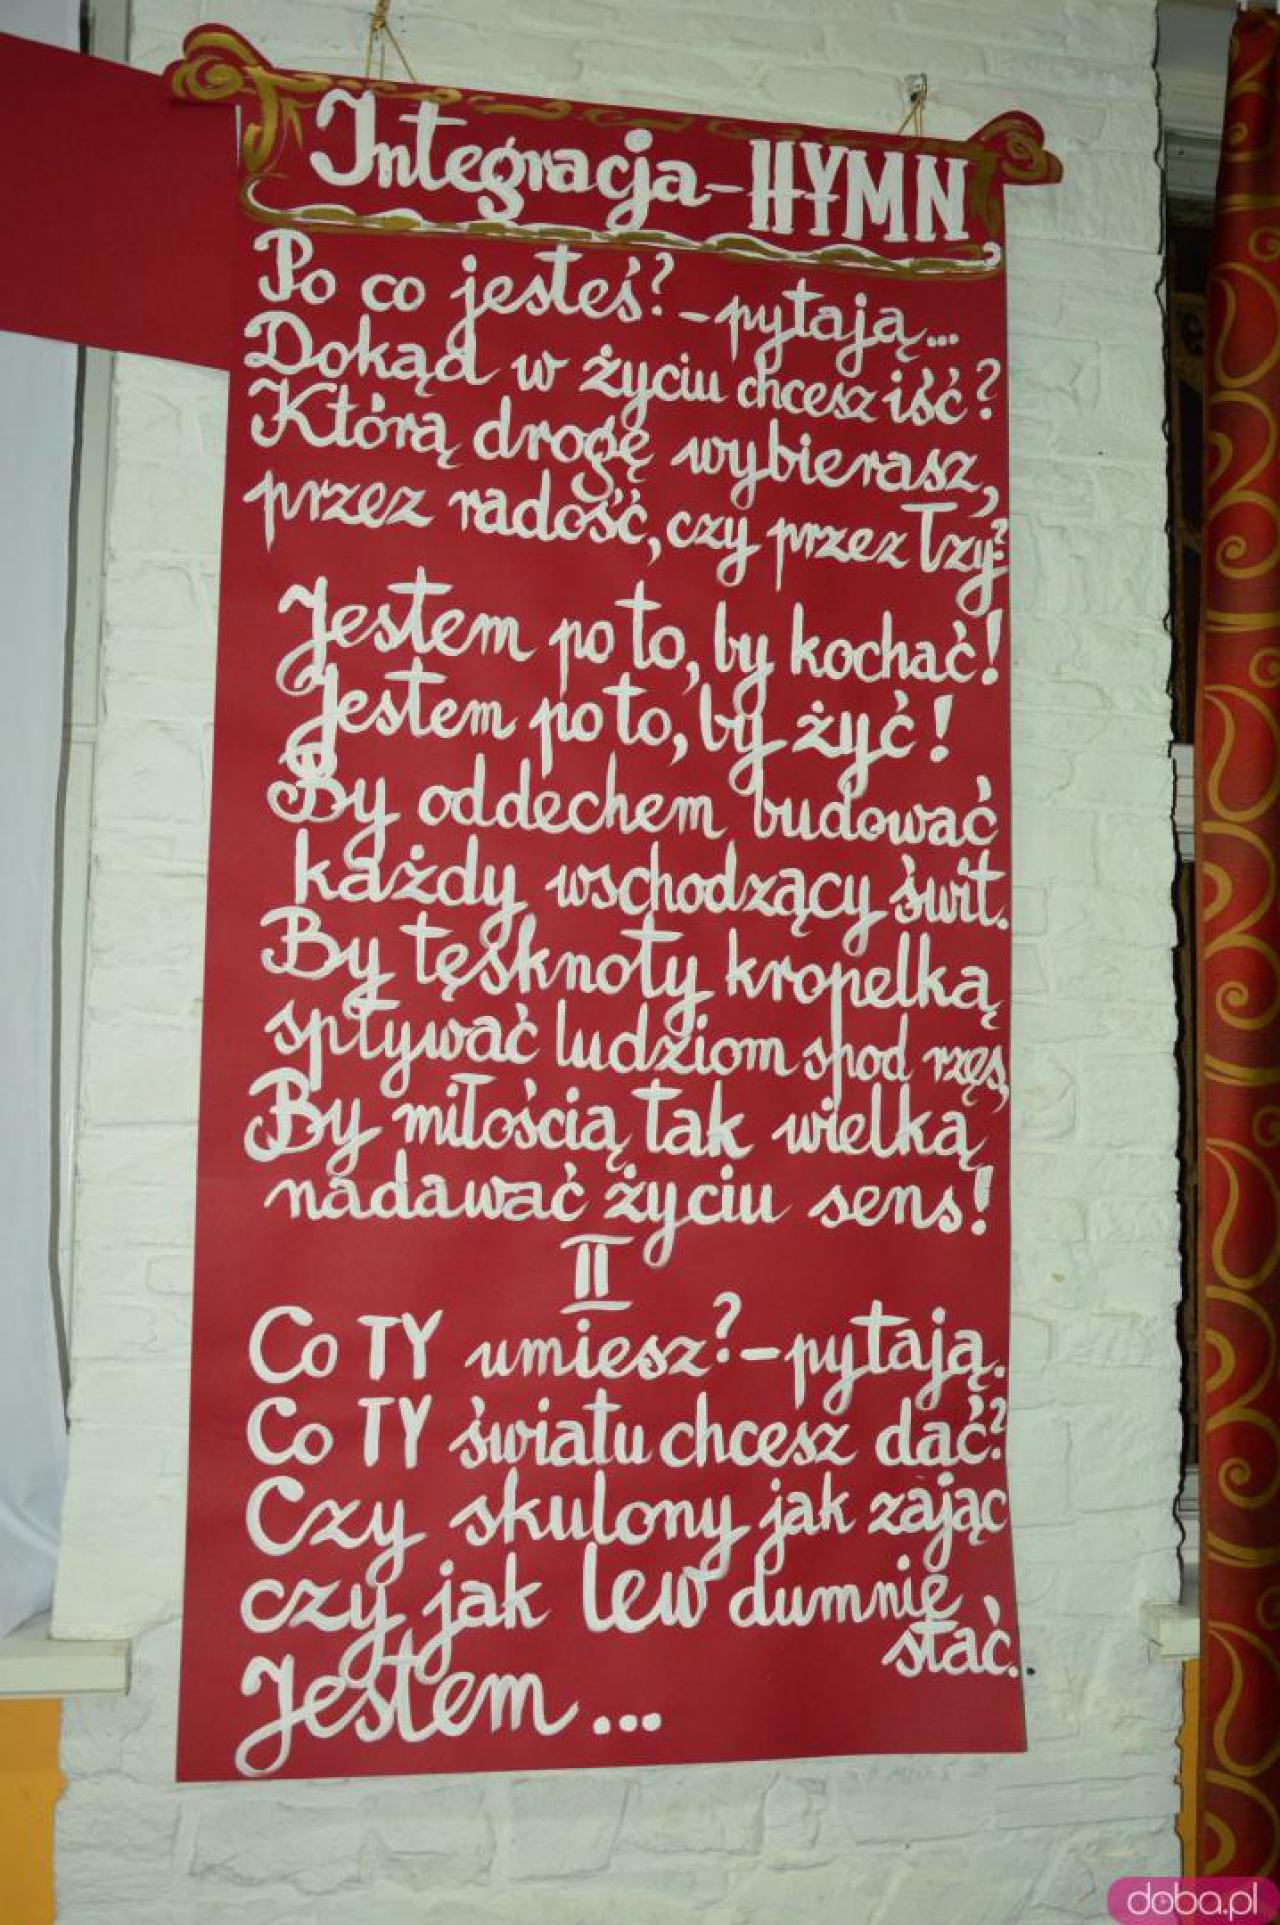 Integracja - HYMN
Po co jesteś? - pytają...
Dokąd w życiu chcesz iść?
Którą drogę wybierasz,
przez radość, czy przez łzy?
Jestem po to, by kochać!
Jestem po to, by żyć!
By oddechem budować
każdy wschodzący świt.
By tęsknoty kropelką
spływać ludziom spod rzęs,
By miłością tak wielką
nadawać życiu sens!
II
Co TY umiesz? - pytają.
Co TY światu chcesz dać?
Czy skulony jak zając
czy jak lew dumnie
stać.
Jestem...
doba.pl